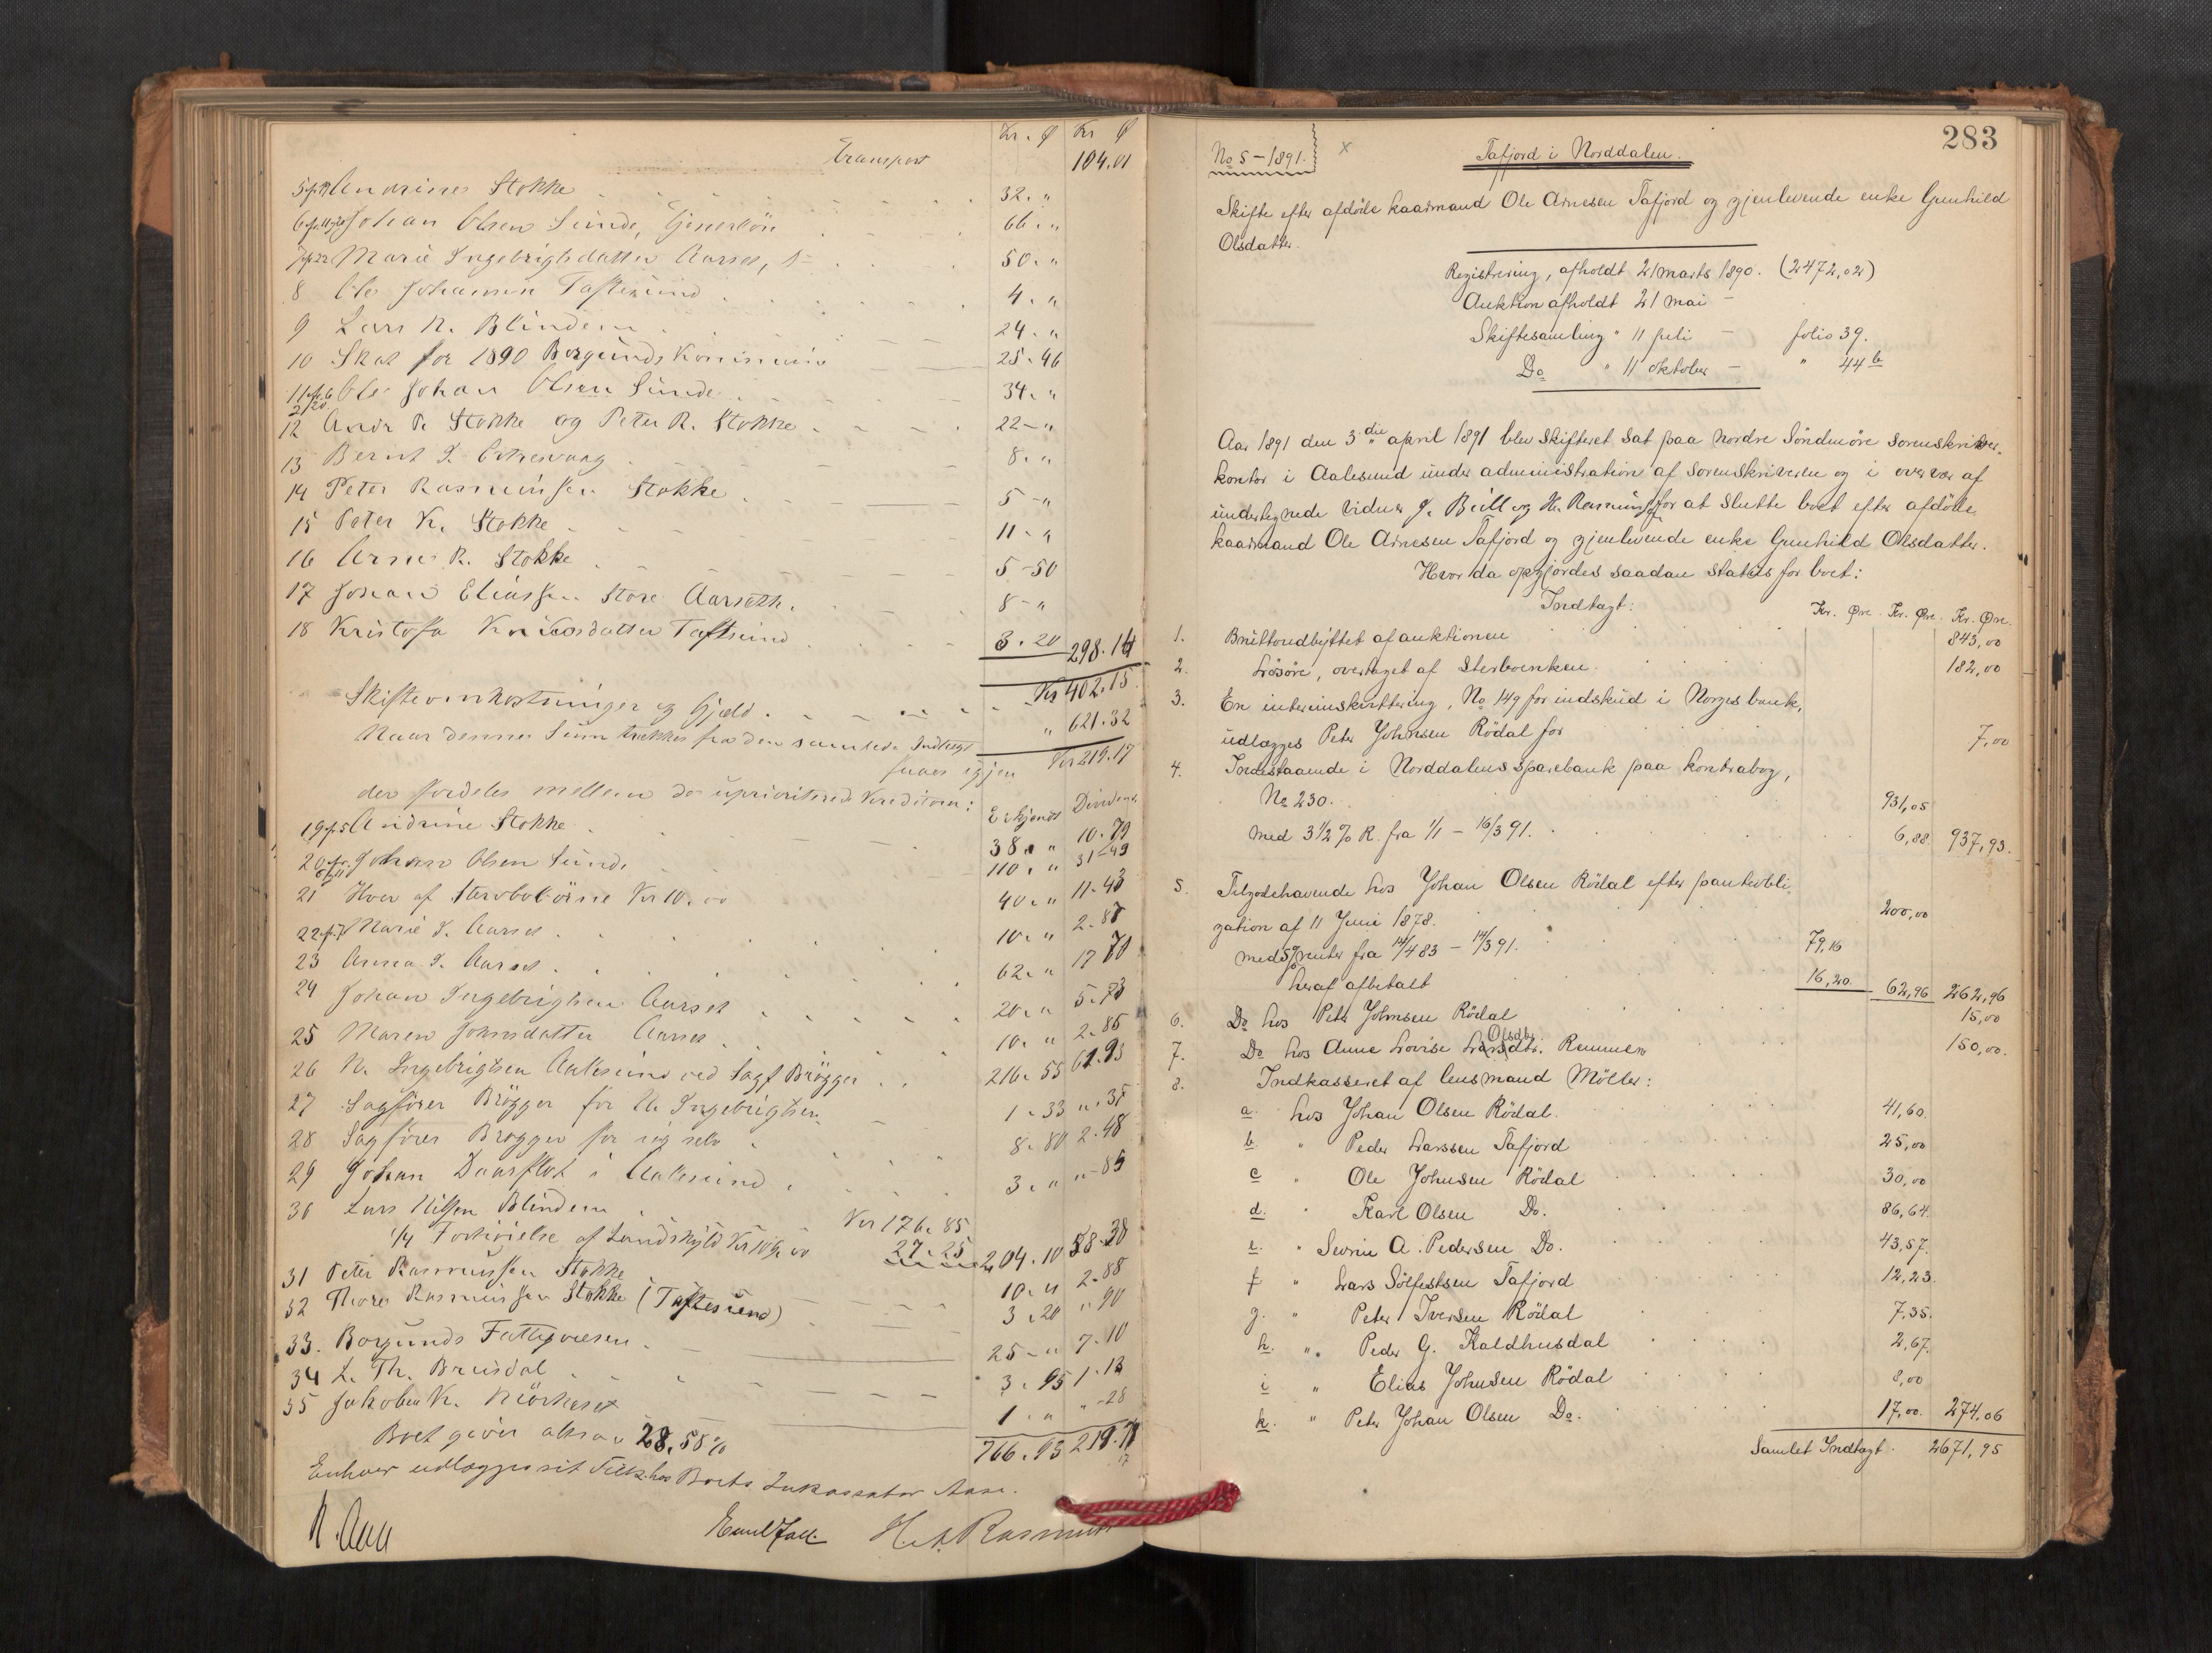 Kr. Ø Kr Ø
Transport 104.01
5 fr.19 Andrine Stokke 32. "
6 fr. 11/20 Johan Olsen Sunde, 66. "
7 fr 22 Marie Ingebrigtsdatter Aarset, 50. "
8 Ole Johannsen Taftesund 4. "
9 Lars N. Blindem 24. "
10 Skat for 1890 Borgunds Kommune 25.46
11 fr. 6 2/20 Ole Johan Olsen Sunde 34. "
12 Andr P. Stokke og Peter R. Stokke 22 - "
13 Bernt 8. "
14 Peter Rasmussen Stokke 5 - "
15 Peter K. Stokke 11 - "
16 Arne R. Stokke 5 - 50
17 Johan Eliassen Store Aarseth. 8 - "
18 Kristofa Taftesund 3.20 298.14
Kr 402.15
Skifteomkostninger og Gjæld " 621.32
Naar denne Sum trækkes fra den samlede Indtægt
faaes igjen Kr 219.17
der fordeles mellem de uprioriterede Kreditorer: Erkjendt Dividende
19 fr. 5 Andrine Stokke 38. " 10.79
20 fr. 6/11 Johan Olsen Sunde 110. " 31-43
21 Hver af Stervbobörne Kr 10.00 40. " 11.43
22 fr. 7 Marie I. Aarset 10. " 2.87
23 Anna I. Aarset 62. " 17 70
24 Johan Ingebrigtsen Aarset 20. " 5.73
25 Maren Johnsdatter Aarset 10. " 2.85
26 N. Ingebrigtsen Aalesund ved Sagf Brögger 216.55 61.93
27 Sagförer Brögger for N. Ingebrigtsen 1.33 ".38
28 Sagförer Brögger for sig selv 8.80 2.48
29 Johan Daarflot i Aalesund 3. " "-85
30 Lars Nilsen Blindem Kr 176.85
1/4 Forhöielse af Landskyld Kr 109.00 27.25 204.10 58.38
31 Peter Rasmussen Stokke 10. " 2.88
32 Thore Rasmussen Stokke (Taftesund) 3.20 " 90
33. Borgunds Fattigvæsen 25 - " 7.10
34 L. Th. Brusdal 3.95 1.13
35 Jakob K. Mörkeset 1. " " -28
Boet giver altsaa 28,58% 766.93 219.17
Enhver udlægges sit Tilk. hos Boets Inkassator Aase.
N. Aase Emil Falk H. A. Rasmussen
283
No 5 - 1891. x Tafjord i Norddalen.
Skifte efter afdöde kaarmand Ole Arnesen Tafjord og gjenlevende enke Gunhild
Olsdatter.
Registrering, afholdt 21 marts 1890. (2472,02)
Auktion afholdt 21 mai -
Skiftesamling " 11 juli - folio 39.
Do " 11 oktober - " 44 b
Aar 1891 den 3 die april 1891 blev skifteret sat paa Nordre Söndmöre sorenskriver-
kontor i Aalesund under administration af sorenskriveren og i overvær af
undertegnede vidner J. Bull og H. Rasmussen for at slutte boet efter afdöde
kaarmand Ole Arnesen Tafjord og gjenlevende enke Gunhild Olsdatter.
Hvor da opgjordes saadan status for boet:
Indtægt: Kr. Øre. Kr. Øre. Kr. Øre.
1. Bruttoudbyttet af auktionen 843,00
2. Lösöre, overtaget af sterboenken 182,00
3. En interimskvittering, No 149 for indskud i Norges bank,
udlægges Peter Johnsen Rödal for 7,00
4. Indestaaende i Norddalens sparebank paa kontrabog,
No 230. 931,05
med 3 1/2 % R. fra 1/1 - 16/3 91. 6,88 937,93.
5. Tilgodehavende hos Johan Olsen Rödal efter panteobli-
gation af 11 Juni 1878. 200,00
med 5% renter fra 14/4 83 - 14/3 91. 79,16
heraf afbetalt 16,20 62,96 262,96
6. Do hos Peter Johnsen Rödal 15,00
7. Do hos Anne Lovise (Larsdtr.) Olsdtr. Remmem 150,00.
8. Indkasseret af lensmand Möller:
a. hos Johan Olsen Rödal. 41,60.
b. " Peder Larssen Tafjord 25,00
c " Ole Johnsen Rödal 30,00
d. " Karl Olsen Do. 86,64.
e. " Severin A. Pedersen Do. 43,57.
f " Lars Sölfestsen Tafjord 12,23.
g. " Peter Iversen Rödal 7,35.
h. " Peder G. Kaldhusdal 2,67.
i " Elias Johnsen Rödal 8,00
k. " Peter Johan Olsen Do. 17,00. 274,06
Samlet Indtægt. 2671,95